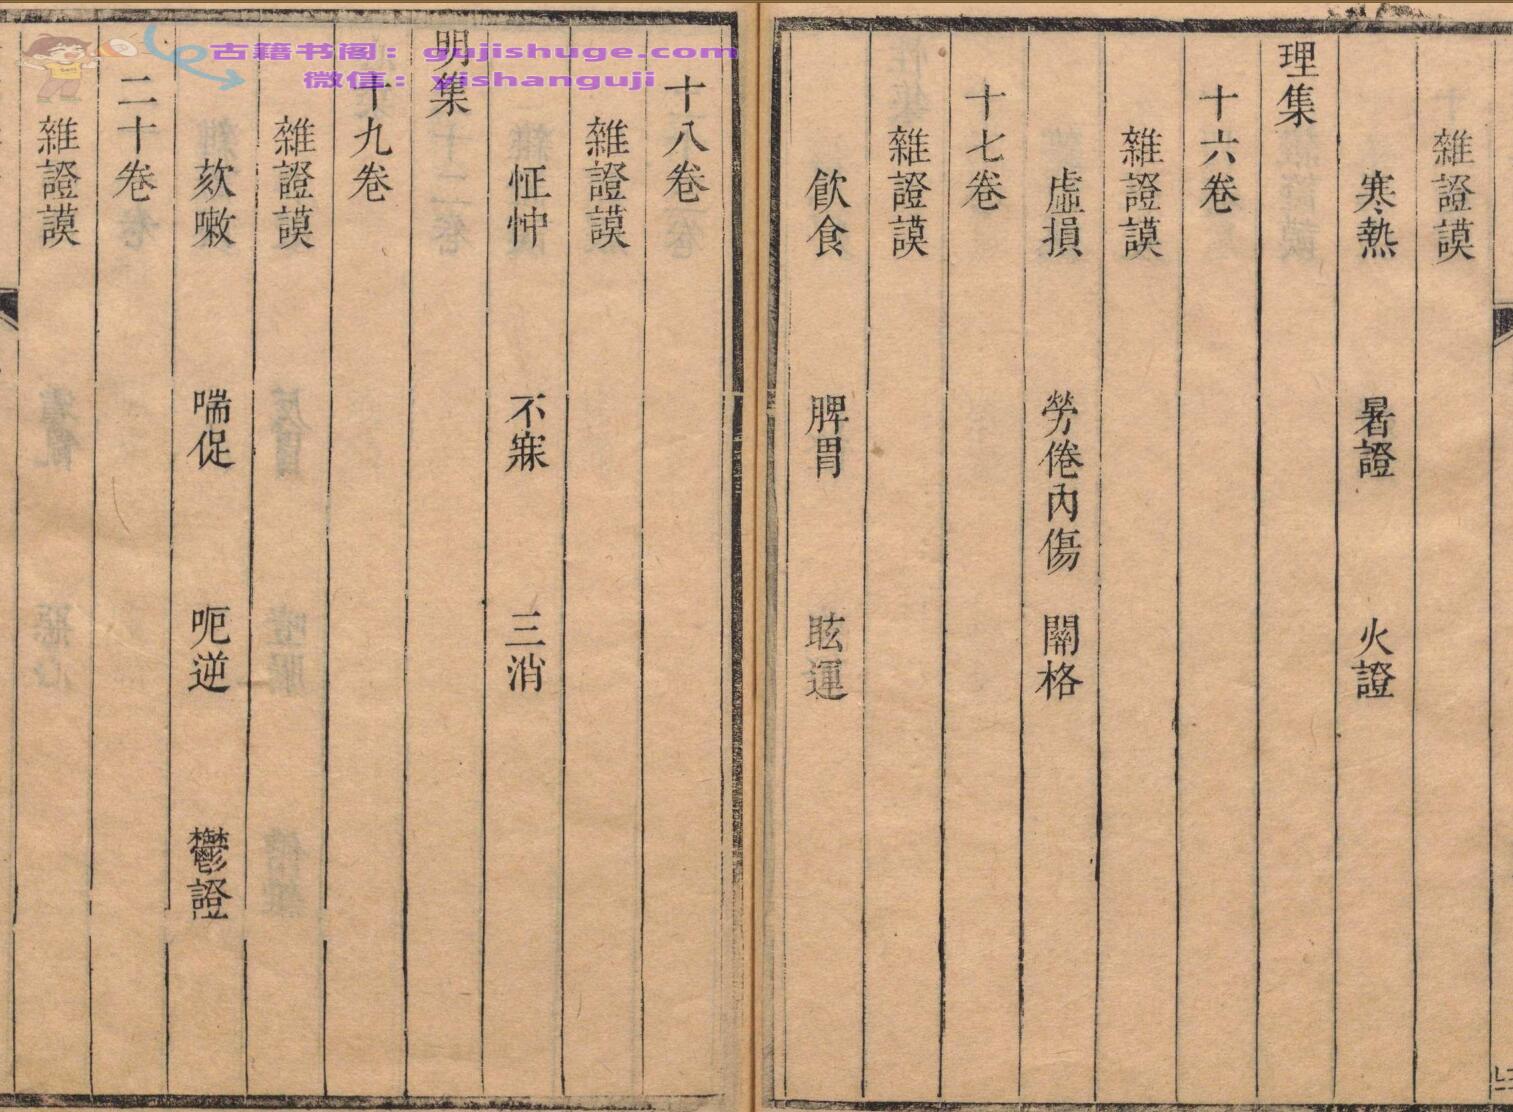 雜證謨
寒熱 暑證 火證
理集
十六卷
雜證謨
虛損 勞倦內傷 關格
十七卷
雜證謨
飲食 脾胃 眩運
十八卷
雜證謨
怔忡 不寐 三消
明集
十九卷
雜證謨
欬嗽 喘促 呃逆 鬱證
二十卷
雜證謨
古籍书阁：gujishuge.com
微信：yishanguji